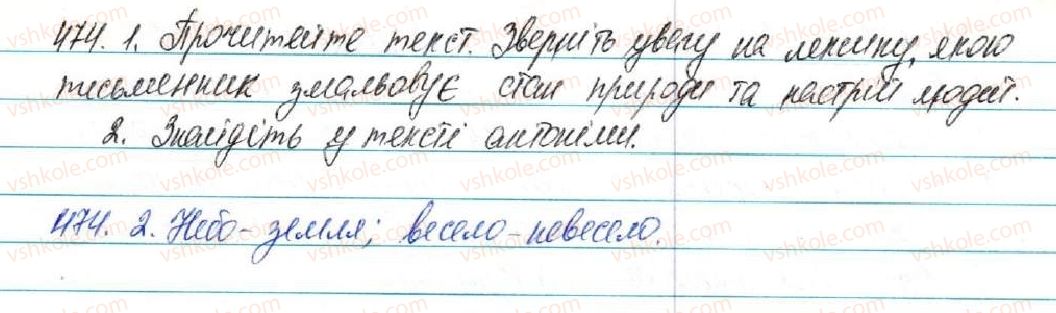 474. 1. Прочитайте текст. Зверніть увагу на лексику, якою
письменник змальовує стан природи та настрій людей.
2. Знайдіть у тексті антоніми.
474. 2. Небо - земля; весело - невесело.